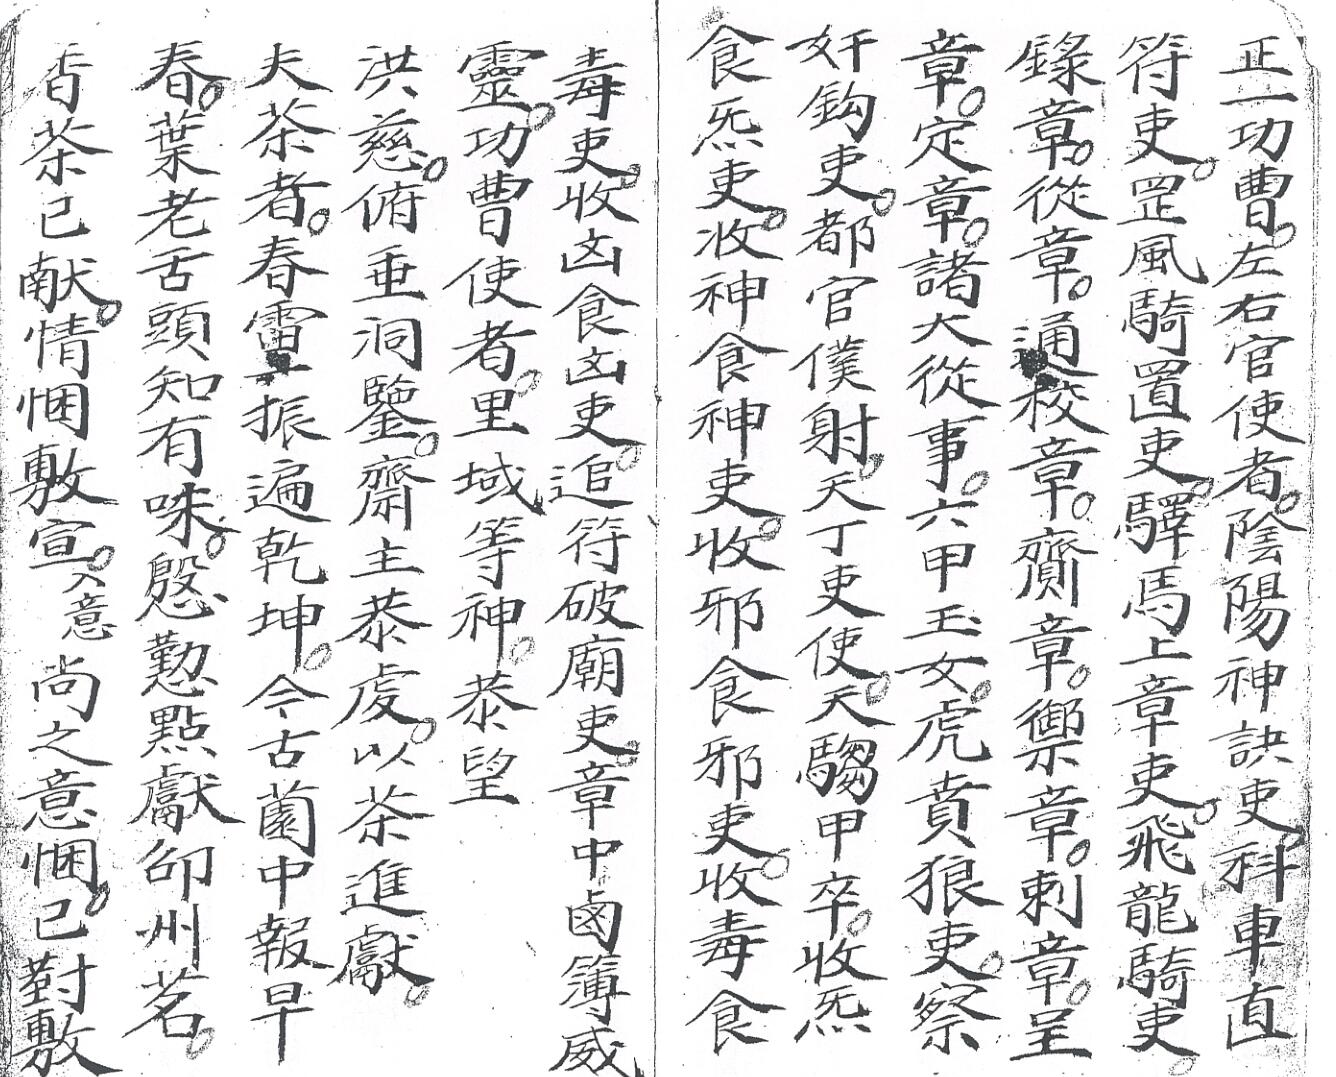 正一功曹。左右官使者。陰陽神訣吏。科車直
符吏。罡風騎置吏。驛馬上章吏。飛龍騎吏。
錄章。從章。通校章。齎章。禦章。刺章。呈
章。定章。諸大從事。六甲玉女。虎賁狼吏。察
奸鈎吏。都官僕射。天丁吏使。天騶甲卒。收炁
食炁吏。收神食神吏。收邪食邪吏。收毒食
毒吏。收凶食凶吏。追符破廟吏。章中鹵簿威
靈。功曹使者。里域等神。恭望
洪慈。俯垂洞鑒。齋主恭虔。以茶進獻。
夫茶者。春雷一振遍乾坤。今古薗中報早
春。葉老舌頭知有味。慇懃點獻卲州茗。
香茶已献。情悃敷宣。入意尚之意悃。已對敷